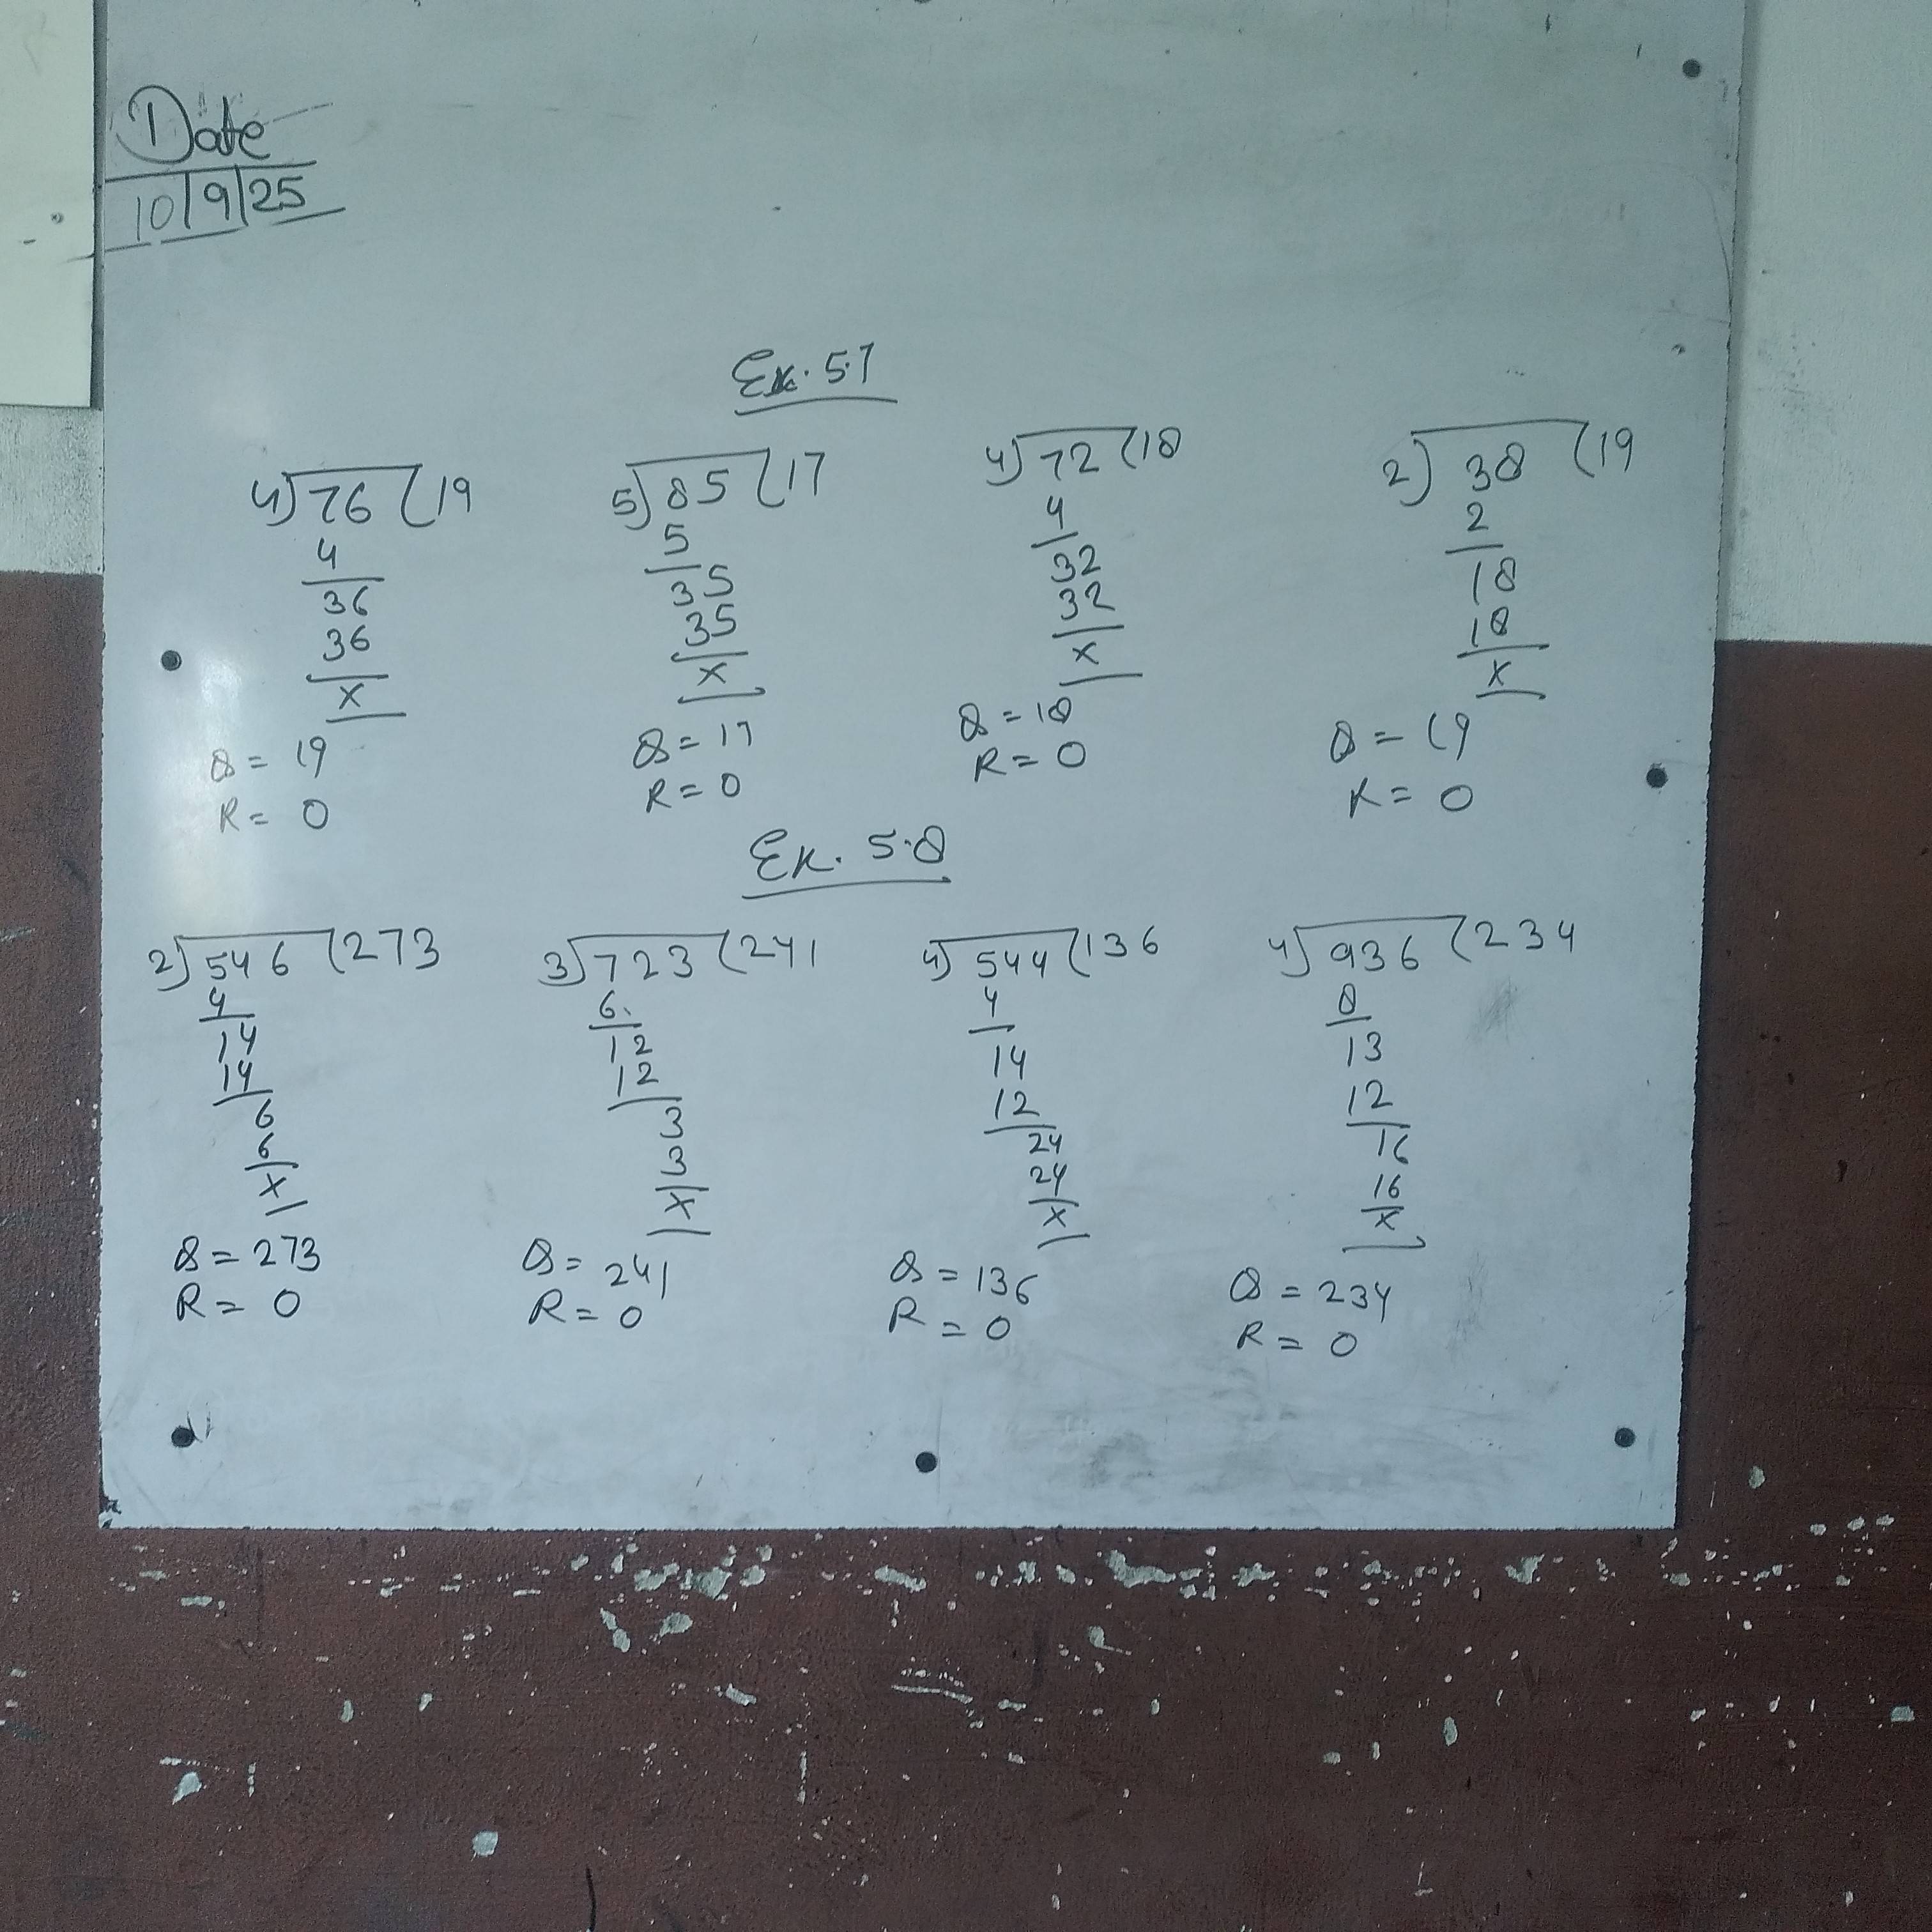 Date
10/9/25
Ex. 5.7
4)76(19
4
36
36
x
Q = 19
R = 0
5)85(17
5
35
35
x
Q = 17
R = 0
4)72(18
4
32
32
x
Q = 18
R = 0
2)38(19
2
18
18
x
Q = 19
R = 0
Ex. 5.8
2)546(273
4
14
14
6
6
x
Q = 273
R = 0
3)723(241
6
12
12
3
3
x
Q = 241
R = 0
4)544(136
4
14
12
24
24
x
Q = 136
R = 0
4)936(234
8
13
12
16
16
x
Q = 234
R = 0